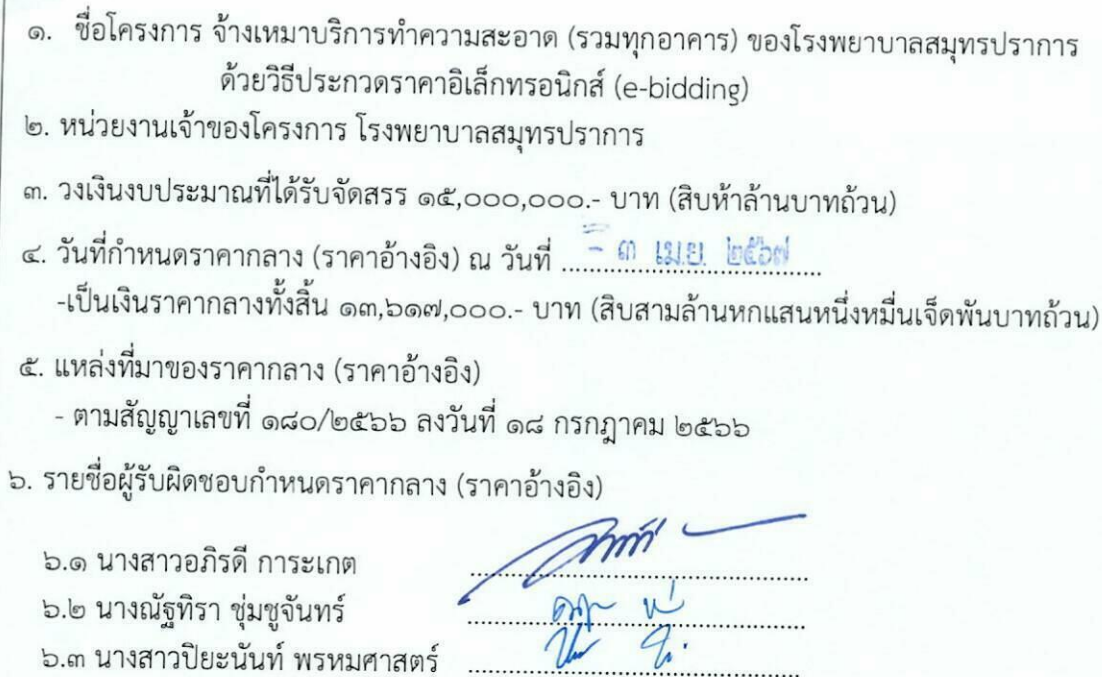 ๑. ชื่อโครงการ จ้างเหมาบริการทำความสะอาด (รวมทุกอาคาร) ของโรงพยาบาลสมุทรปราการ
ด้วยวิธีประกวดราคาอิเล็กทรอนิกส์ (e-bidding)
๒. หน่วยงานเจ้าของโครงการ โรงพยาบาลสมุทรปราการ
๓. วงเงินงบประมาณที่ได้รับจัดสรร ๑๕,๐๐๐,๐๐๐.- บาท (สิบห้าล้านบาทถ้วน)
๔. วันที่กำหนดราคากลาง (ราคาอ้างอิง) ณ วันที่ - ๓ เม.ย. ๒๕๖๗
-เป็นเงินราคากลางทั้งสิ้น ๑๓,๖๑๗,๐๐๐.- บาท (สิบสามล้านหกแสนหนึ่งหมื่นเจ็ดพันบาทถ้วน)
๕. แหล่งที่มาของราคากลาง (ราคาอ้างอิง)
- ตามสัญญาเลขที่ ๑๘๐/๒๕๖๖ ลงวันที่ ๑๘ กรกฎาคม ๒๕๖๖
๖. รายชื่อผู้รับผิดชอบกำหนดราคากลาง (ราคาอ้างอิง)
๖.๑ นางสาวอภิรดี การะเกต
๖.๒ นางณัฐทิรา ชุ่มชูจันทร์
๖.๓ นางสาวปิยะนันท์ พรหมศาสตร์